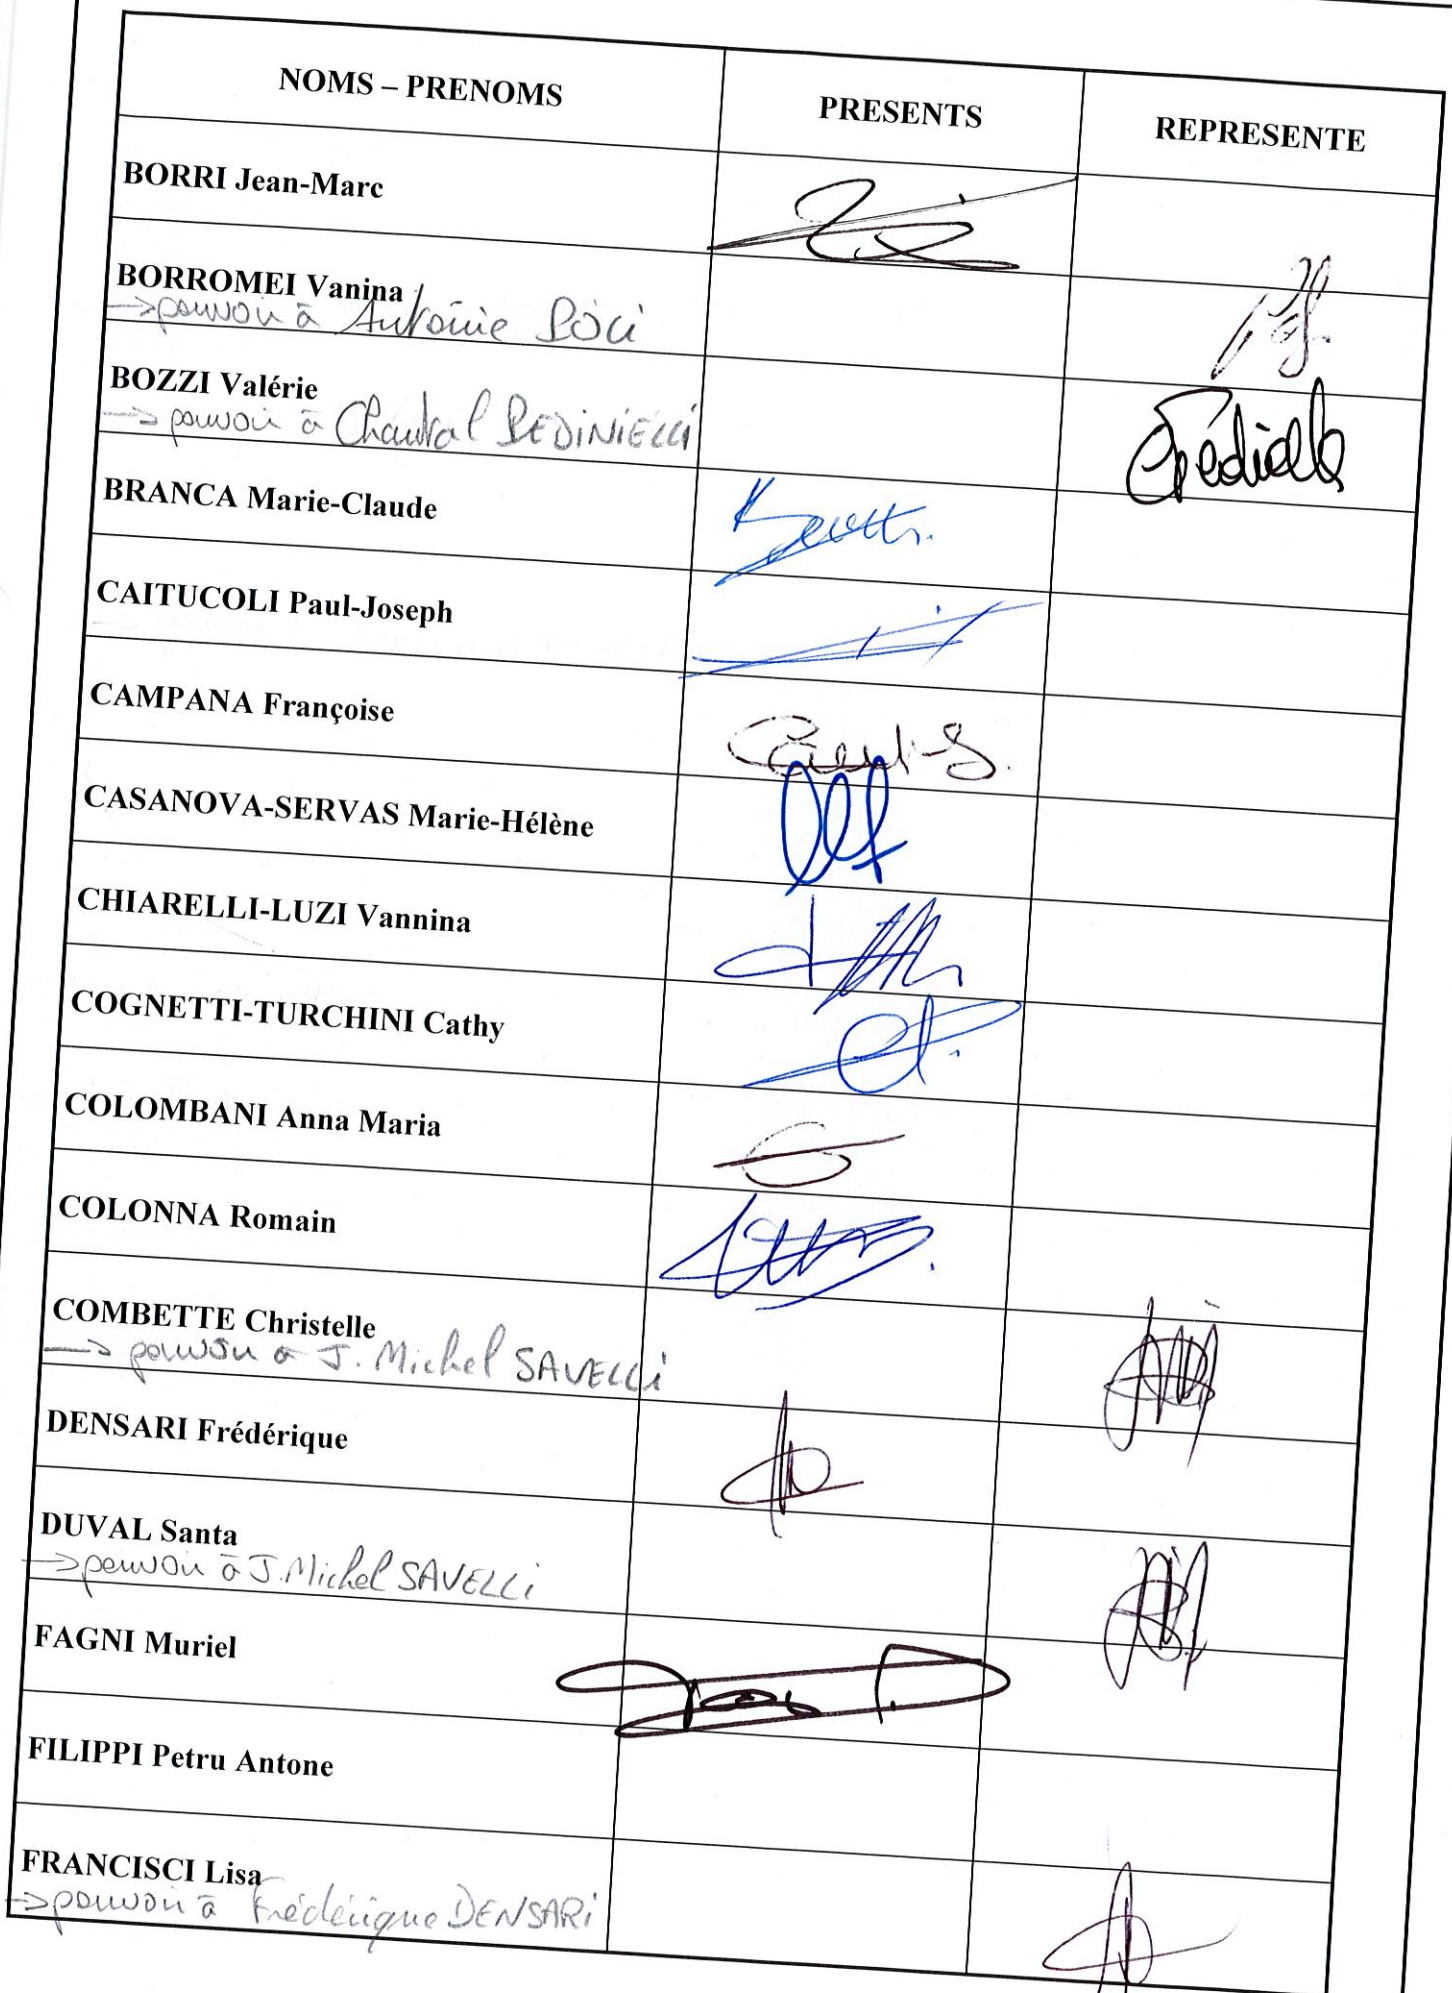 NOMS – PRENOMS PRESENTS REPRESENTE
BORRI Jean-Marc
BORROMEI Vanina
→ pouvoir à Antoine POLI
BOZZI Valérie
→ pouvoir à Chantal PEDINIELLI
BRANCA Marie-Claude
CAITUCOLI Paul-Joseph
CAMPANA Françoise
CASANOVA-SERVAS Marie-Hélène
CHIARELLI-LUZI Vannina
COGNETTI-TURCHINI Cathy
COLOMBANI Anna Maria
COLONNA Romain
COMBETTE Christelle
→ pouvoir à J. Michel SAVELLi
DENSARI Frédérique
DUVAL Santa
→ pouvoir à J. Michel SAVELLi
FAGNI Muriel
FILIPPI Petru Antone
FRANCISCI Lisa
→ pouvoir à Frédérique DENSARi